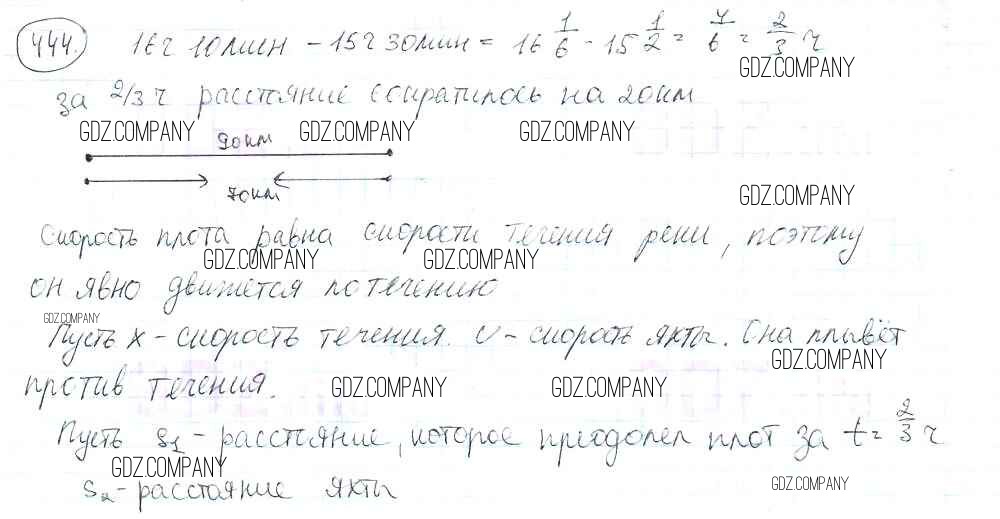 444. 16ч 10мин - 15ч 30мин = 16 1/6 - 15 1/2 = 4/6 = 2/3 ч
GDZ.COMPANY
за 2/3 ч расстояние сократилось на 20км
GDZ.COMPANY GDZ.COMPANY GDZ.COMPANY
90км
70км
GDZ.COMPANY
Скорость плота равна скорости течения реки, поэтому
GDZ.COMPANY GDZ.COMPANY
он явно движется по течению
GDZ.COMPANY
Пусть x - скорость течения. v - скорость яхты. Она плывёт
GDZ.COMPANY
против течения.
GDZ.COMPANY GDZ.COMPANY
Пусть S1 - расстояние, которое преодолел плот за t = 2/3 ч
GDZ.COMPANY
S2 - расстояние яхты
GDZ.COMPANY